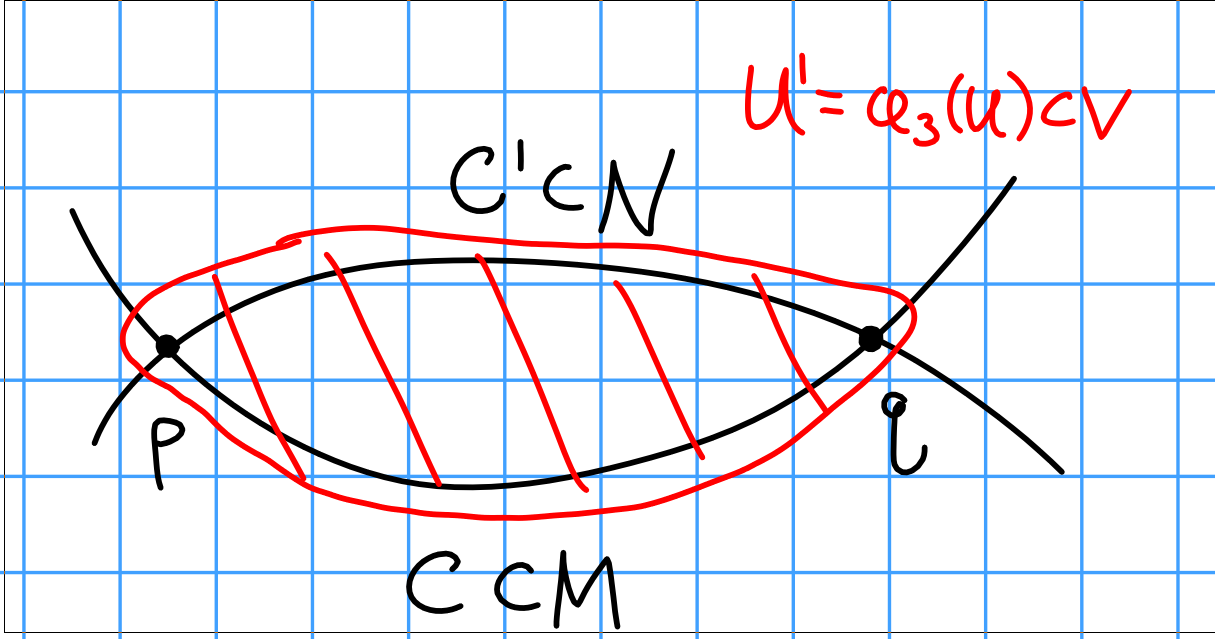 U' = φ₃(U) ⊂ V
C' ⊂ N
p
q
C ⊂ M